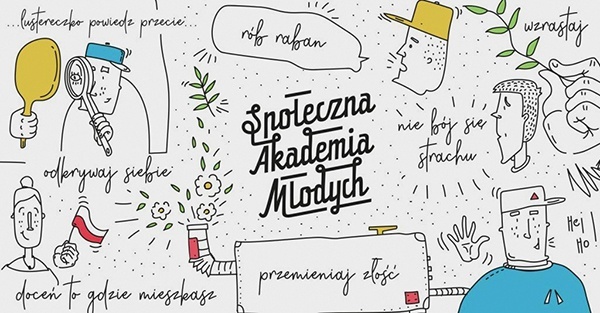 ...lustereczko powiedz przecie...
rób raban
wzrastaj
Społeczna
Akademia
Młodych
nie bój się
strachu
odkrywaj siebie
przemieniaj złość
Hej
Ho!
doceń to gdzie mieszkasz